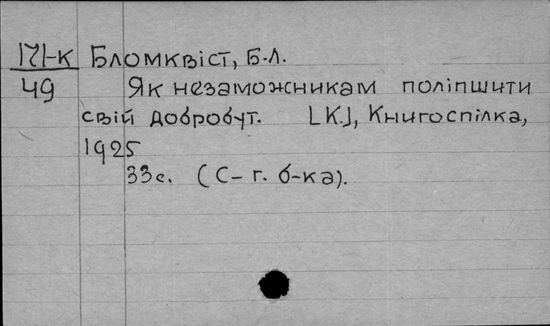 171-К Бломквіст, Б-Л.
49 Як незаможникам поліпшити
свій добробут. [К.], Книгоспілка,
1925
33с. (С-г. б-ка).